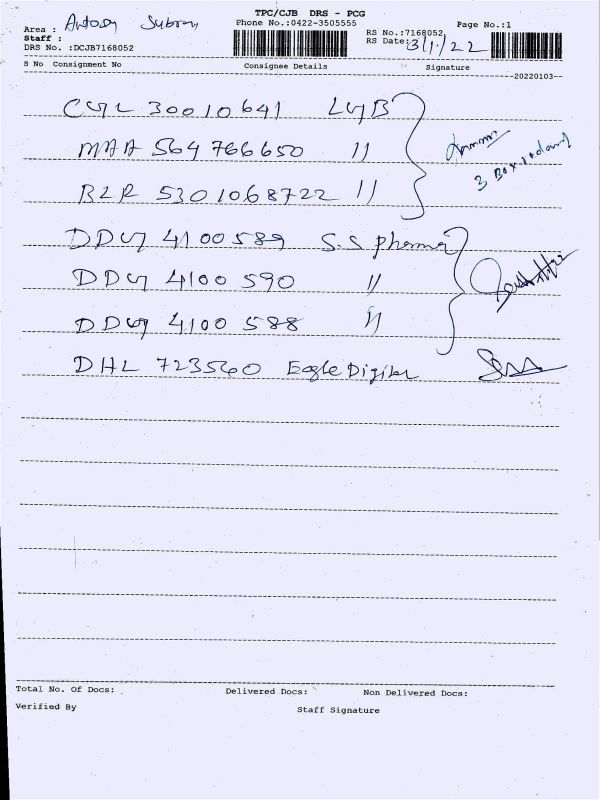 TPC/CJB DRS - PCG
Phone No.:0422-3505555
Page No.:1
Area : Antony
Staff :
RS No.:7168052
DRS No. :DCJB7168052
RS Date: 3/1/22
S No Consignment No Consignee Details Signature
20220103
30010641
MAA 564 766650 "
BLR 5301068722 "
3 Box
4100589 S.S pharma
4100590 "
4100588 "
DHL 723560 Eagle
Total No. Of Docs: Delivered Docs: Non Delivered Docs:
Verified By Staff Signature